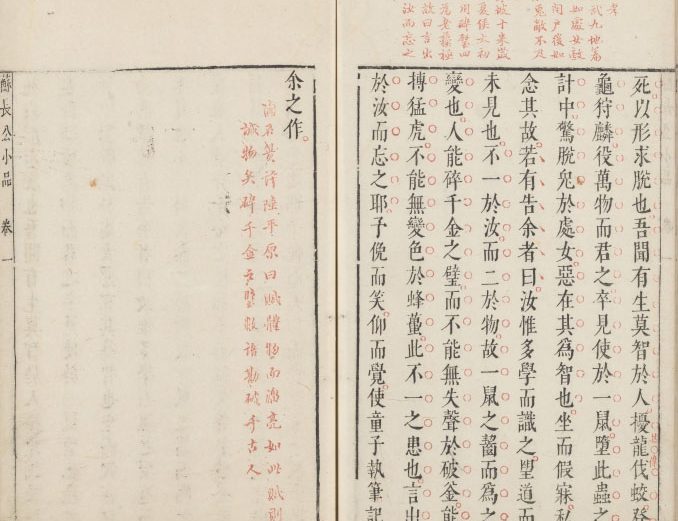 武九地篇
死以形求脫也吾聞有生莫智於人擾龍伐蛟登
龜狩麟役萬物而君之卒見使於一鼠墮此蟲之
計中驚脫兔於處女惡在其為智也坐而假寐私
念其故若有告余者曰汝惟多學而識之朢道而
未見也不一於汝而二於物故一鼠之齧而為之
變也人能碎千金之璧而不能無失聲於破釜能
摶猛虎不能無變色於蜂蠆此不一之患也言出
於汝而忘之耶子俛而笑仰而覺使童子執筆記
余之作
陸平原曰賦體物而瀏亮如此賦則
識物矣碎千金之璧數語勘破千古人
蘇長公小品 卷一